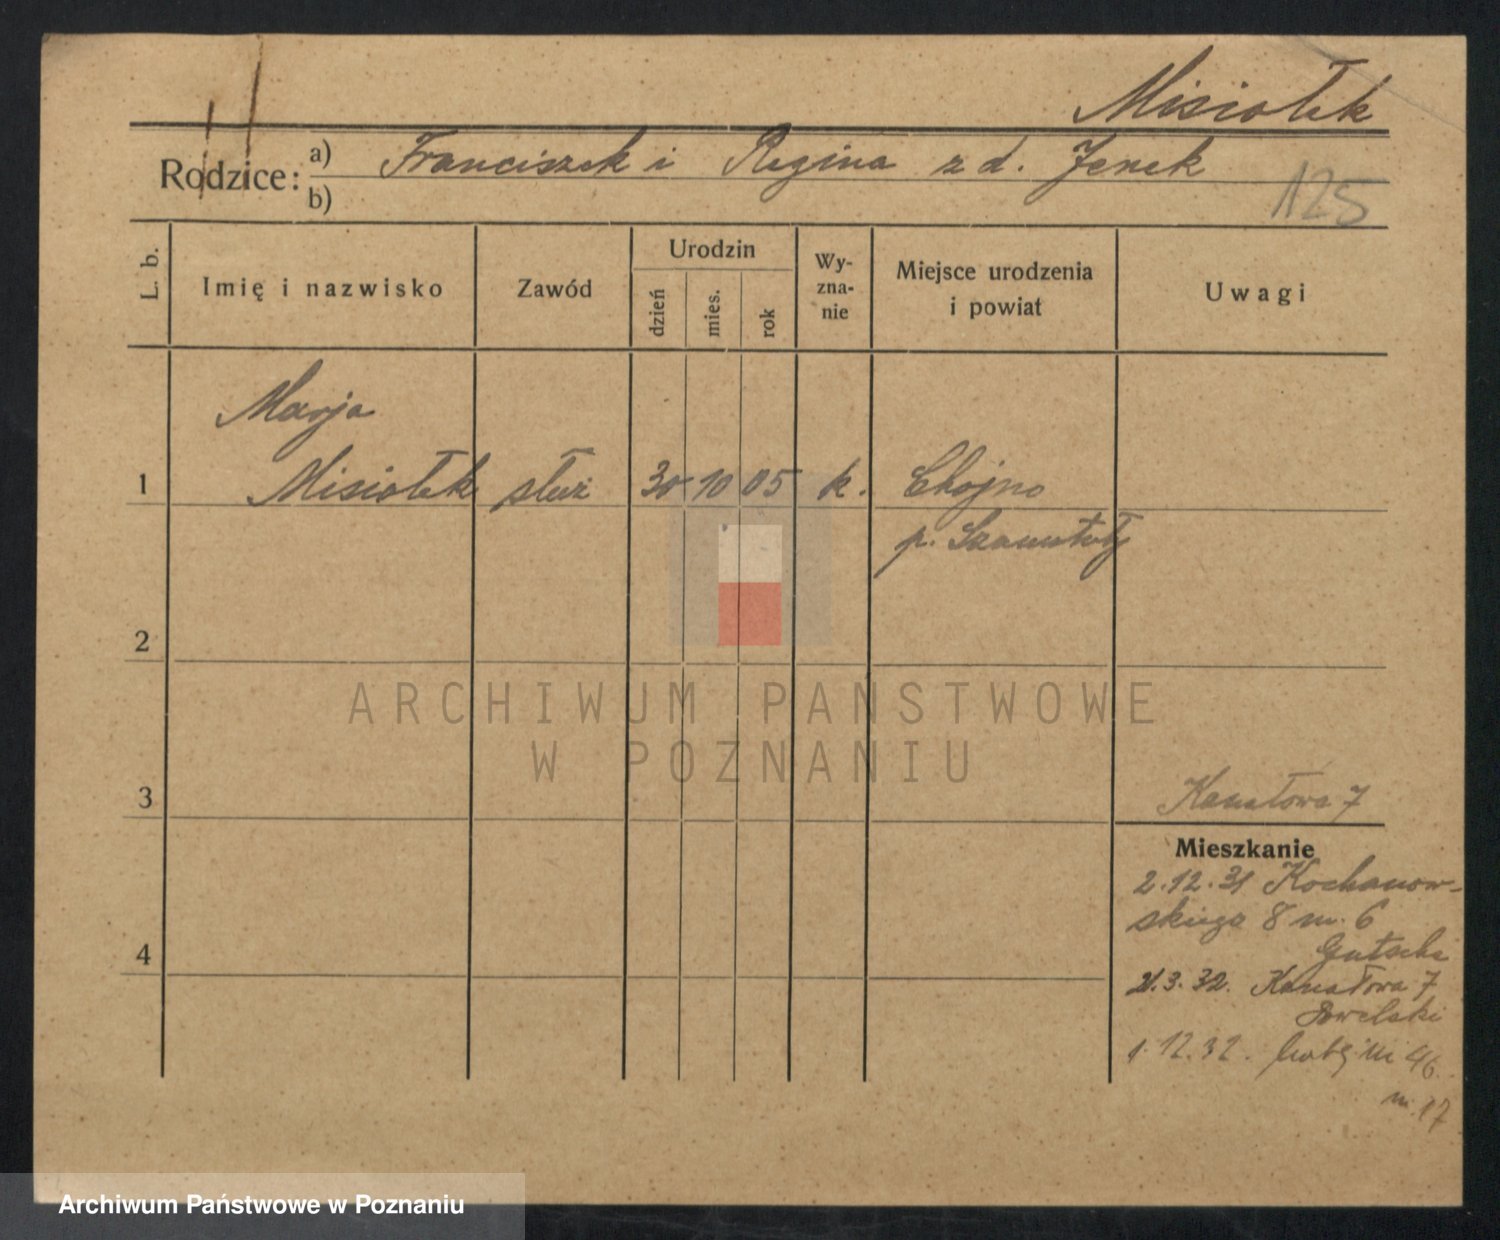 Misiołek
Rodzice: a) Franciszek i Regina z d. Jenek
b)
125
L. b.
Imię i nazwisko
Zawód
Urodzin
dzień
mies.
rok
Wy-
zna-
nie
Miejsce urodzenia
i powiat
Uwagi
Marja
1 Misiołek służ 30 10 05 k. Chojno
p. Szamotuły
2
3
4
Kanałowa 7
Mieszkanie
2.12.31 Kochanow-
skiego 8 m. 6
Gutsche
21.3.32. Kanałowa 7
1.12.32. 46.
m. 17
ARCHIWUM PAŃSTWOWE
W POZNANIU
Archiwum Państwowe w Poznaniu